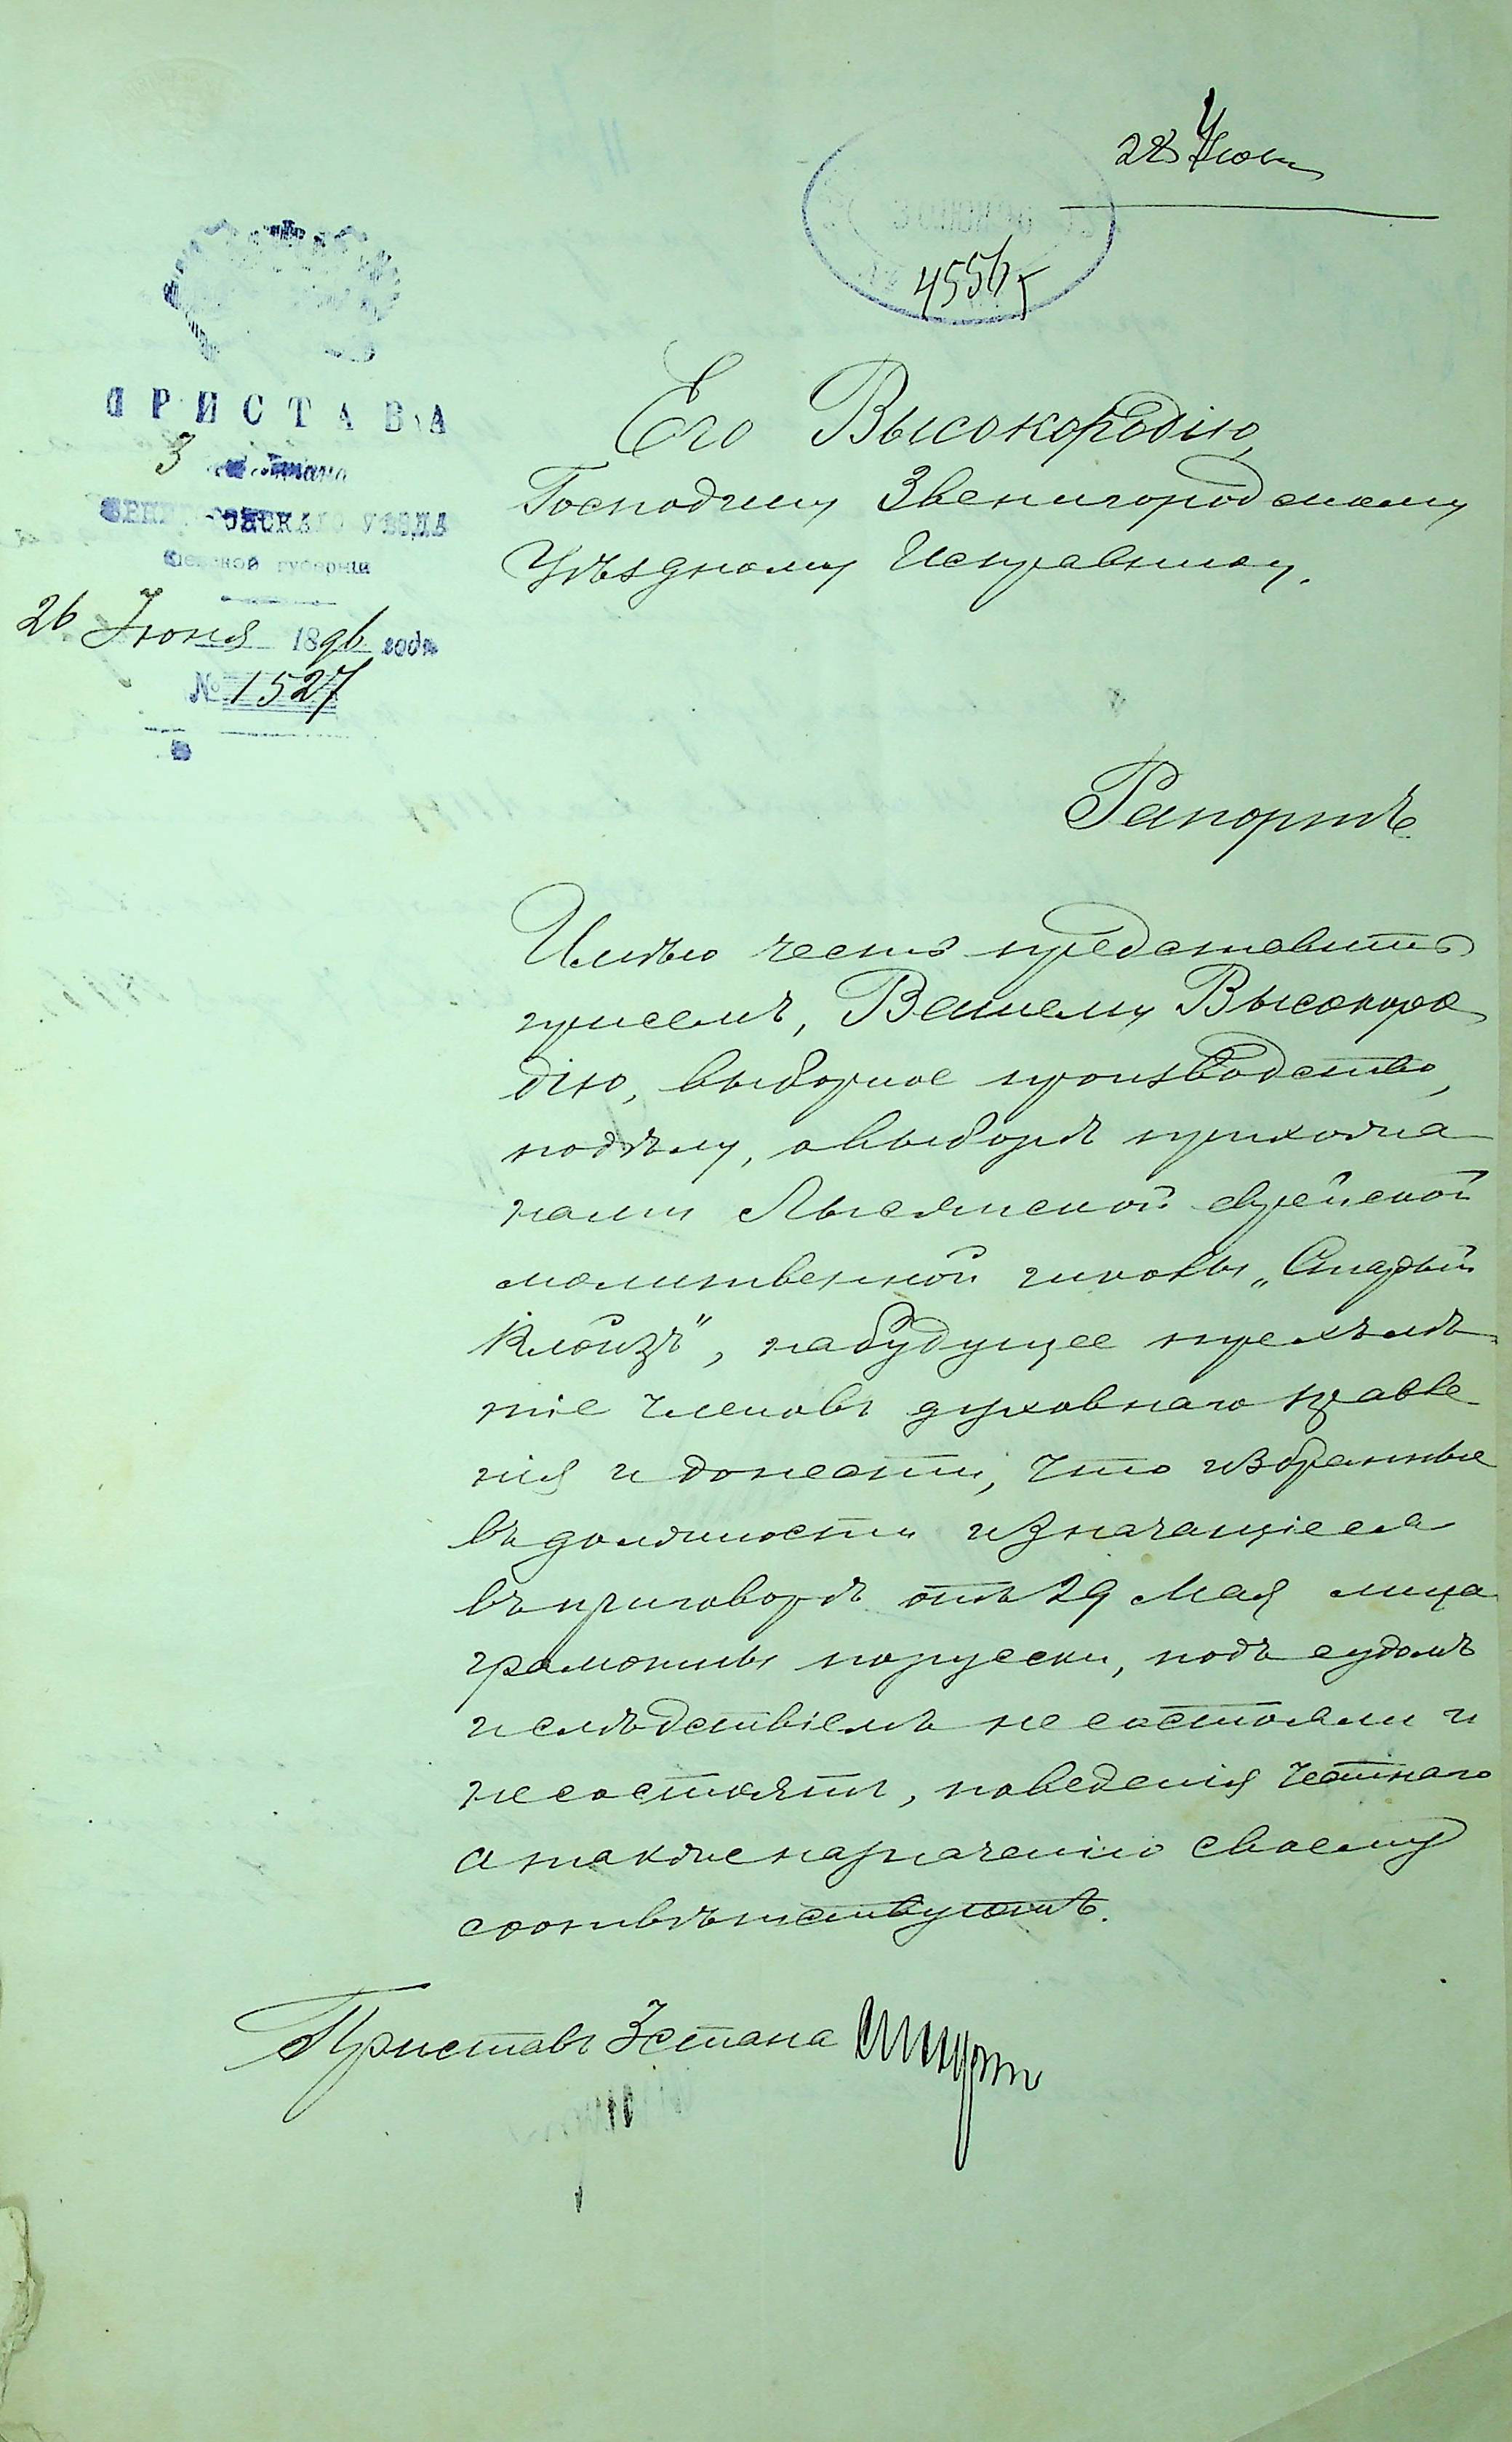 28 Июня
4556
ПРИСТАВА
3 Стана
ЗВЕНИГОРОДСКАГО УѢЗДА
Кіевской губерніи
26 Іюня 1896 года
№ 1527
Его Высокородію
Господину Звенигородскому
Уѣздному Исправнику.
Рапортъ
Имѣю честь представить
присемъ, Вашему Высокоро
дію, выборное производство,
подѣлу, овыборѣ прихожа
нами Лысянской еврейской
молитвенной школы „Старый
Клойзъ", набудущее трехлѣ
тіе членовъ духовнаго правле
нія и донести, что избранные
въ должности изначащіеся
въ приговорѣ отъ 29 Мая лица
грамотны порусски, подъ судомъ
и слѣдствіемъ не состояли и
не состоятъ, поведенія честнаго
а также назначенію своему
соотвѣтствуютъ.
Приставъ 3 стана